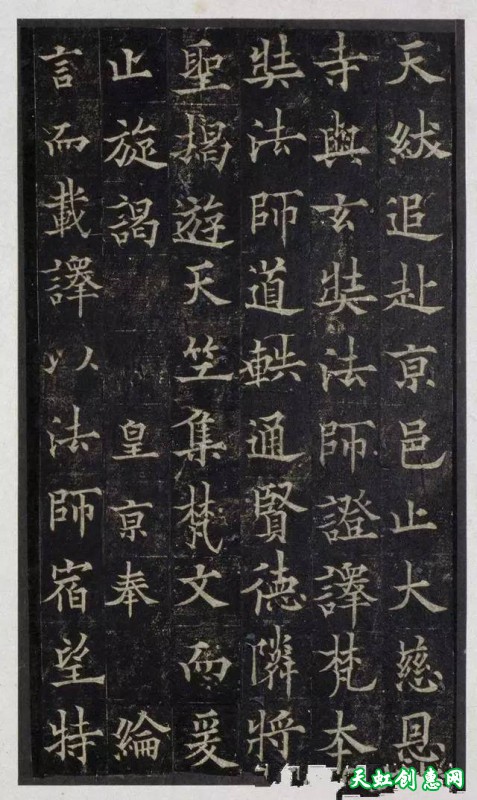 天紱追赴亰邑止大慈恩
寺與玄奘法師證譯梵本
奘法師道軼通賢德隣將
聖揭遊天竺集梵文而爰
止旋謁　皇亰奉　綸
言而載譯以法師宿望特
天虹创惠网